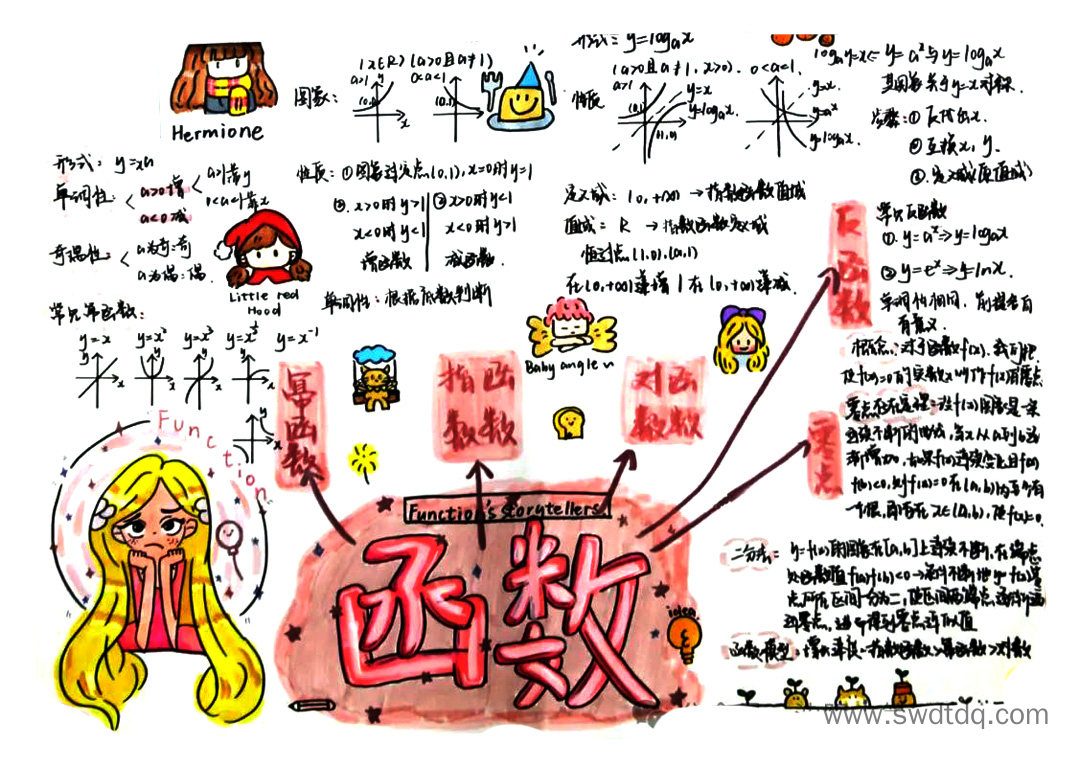 Hermione
形式: y=xα
单调性:
a>0增
a<0减
a>1靠y
0<a<1靠x
奇偶性:
a为奇:奇
a为偶:偶
常见幂函数:
y=x y=x² y=x³ y=x^½ y=x⁻¹
Little red Hood
Function
幂函数
图象:
(x∈R) (a>0且a≠1)
a>1
0<a<1
(0,1)
性质: ①图象过定点(0,1), x=0时y=1
②. x>0时y>1
x<0时y<1
增函数
②x>0时y<1
x<0时y>1
减函数
单调性: 根据底数判断
指函数数
形式: y=logₐx
性质
(a>0且a≠1, x>0).
a>1
0<a<1.
y=x
y=logₐx
(1,0)
y=x
y=aˣ
y=logₐx
定义域: (0,+∞) → 指数函数值域
值域: R → 指数函数定义域
恒过点(1,0),(a,1)
在(0,+∞)递增 | 在(0,+∞)递减
Baby angle
对函数数
logₐy=x⇐ y=aˣ与y=logₐx
其图象关于y=x对称.
步骤: ①反代出x.
②互换x, y.
③. 定义域(原值域)
反函数
常见反函数
①. y=aˣ⇒y=logₐx
②y=eˣ⇒y=lnx.
单调性相同, 前提各自
有意义.
零点
概念: 对于函数f(x), 我们把
使f(x)=0的实数x叫做f(x)的零点
零点存在定理:
f(b)<0, 则f(x)=0在(a,b)内至少有
一个根, 即存在x∈(a,b), 使f(x)=0.
二分法: y=f(x)的图象在[a,b]上连续不断, 在端点
处函数值f(a)f(b)<0→通过不断地把f(x)零
点所在区间一分为二, 使区间两端点逐步逼
近零点, 进而得到零点近似值
函数模型: 增长速度: 指数函数>幂函数>对数
Function's storytellers
函数
idea
www.swdtdq.com